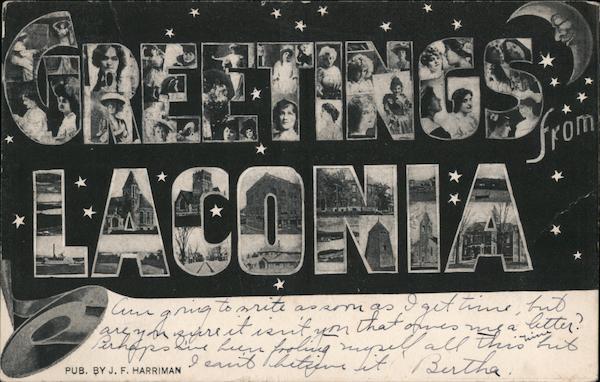 GREETINGS
from
LACONIA
Am going to write as soon as I get time, but
are you sure it isn't you that owes me a letter?
Perhaps I've been fooling myself all this time but
I can't believe it. Bertha.
PUB. BY J. F. HARRIMAN